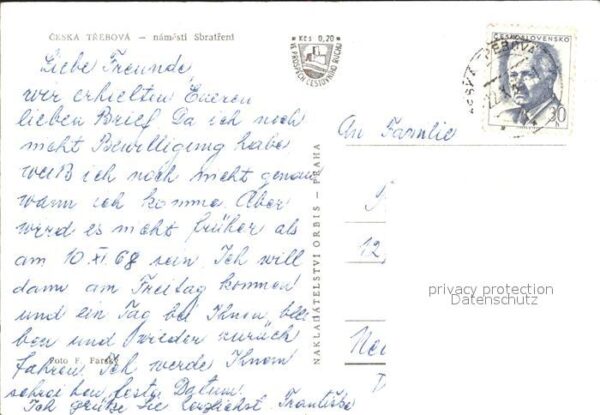 ČESKÁ TŘEBOVÁ – náměstí Sbratření
Liebe Freunde,
wir erhielten Eueren
lieben Brief. Da ich noch
nicht Bewilligung habe
weiß ich noch nicht genau
wann ich komme. Aber
wird es nicht früher als
am 10.XI.68 sein. Ich will
dann am Freitag kommen
und ein Tag bei Ihnen blei
ben und wieder zurück
fahren. Ich werde Ihnen
schreiben festes Datum.
Ich grüße Sie herzlichst Františka
Foto F. Farský
Kčs 0,20
VE PROSPĚCH CESTOVNÍHO RUCHU
NAKLADATELSTVÍ ORBIS – PRAHA
ČESKOSLOVENSKO
30
ČESKÁ TŘEBOVÁ
An Familie
12,
privacy protection
Datenschutz